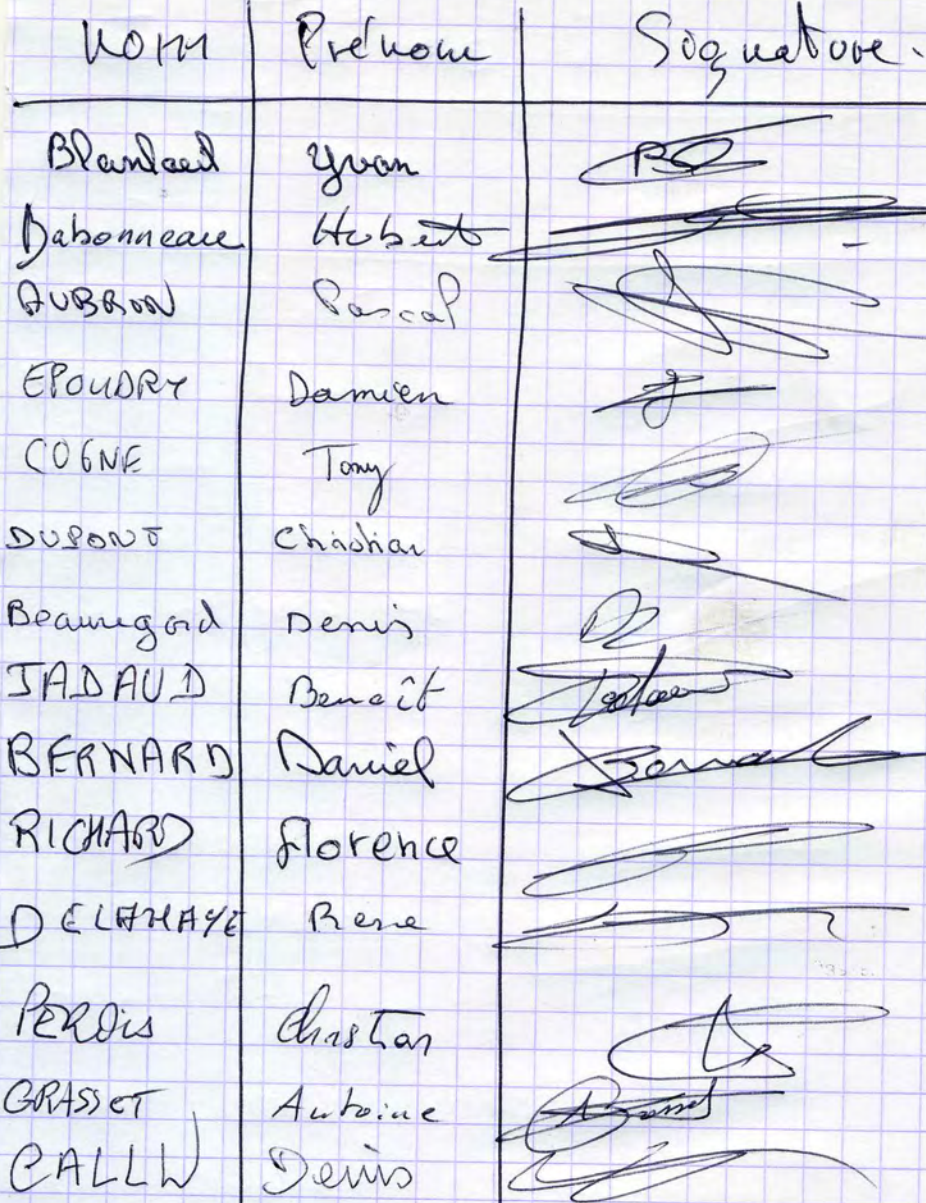 NOM Prénom Signature.
Yvan
Babonneau Hubert
AUBRON Pascal
EPOUDRY Damien
COGNE Tony
DUPONT Christian
Beauregard Denis
JADAUD Benoît
BERNARD Daniel
RICHARD florence
DELAHAYE Rene
Christian
GRASSET Antoine
Denis